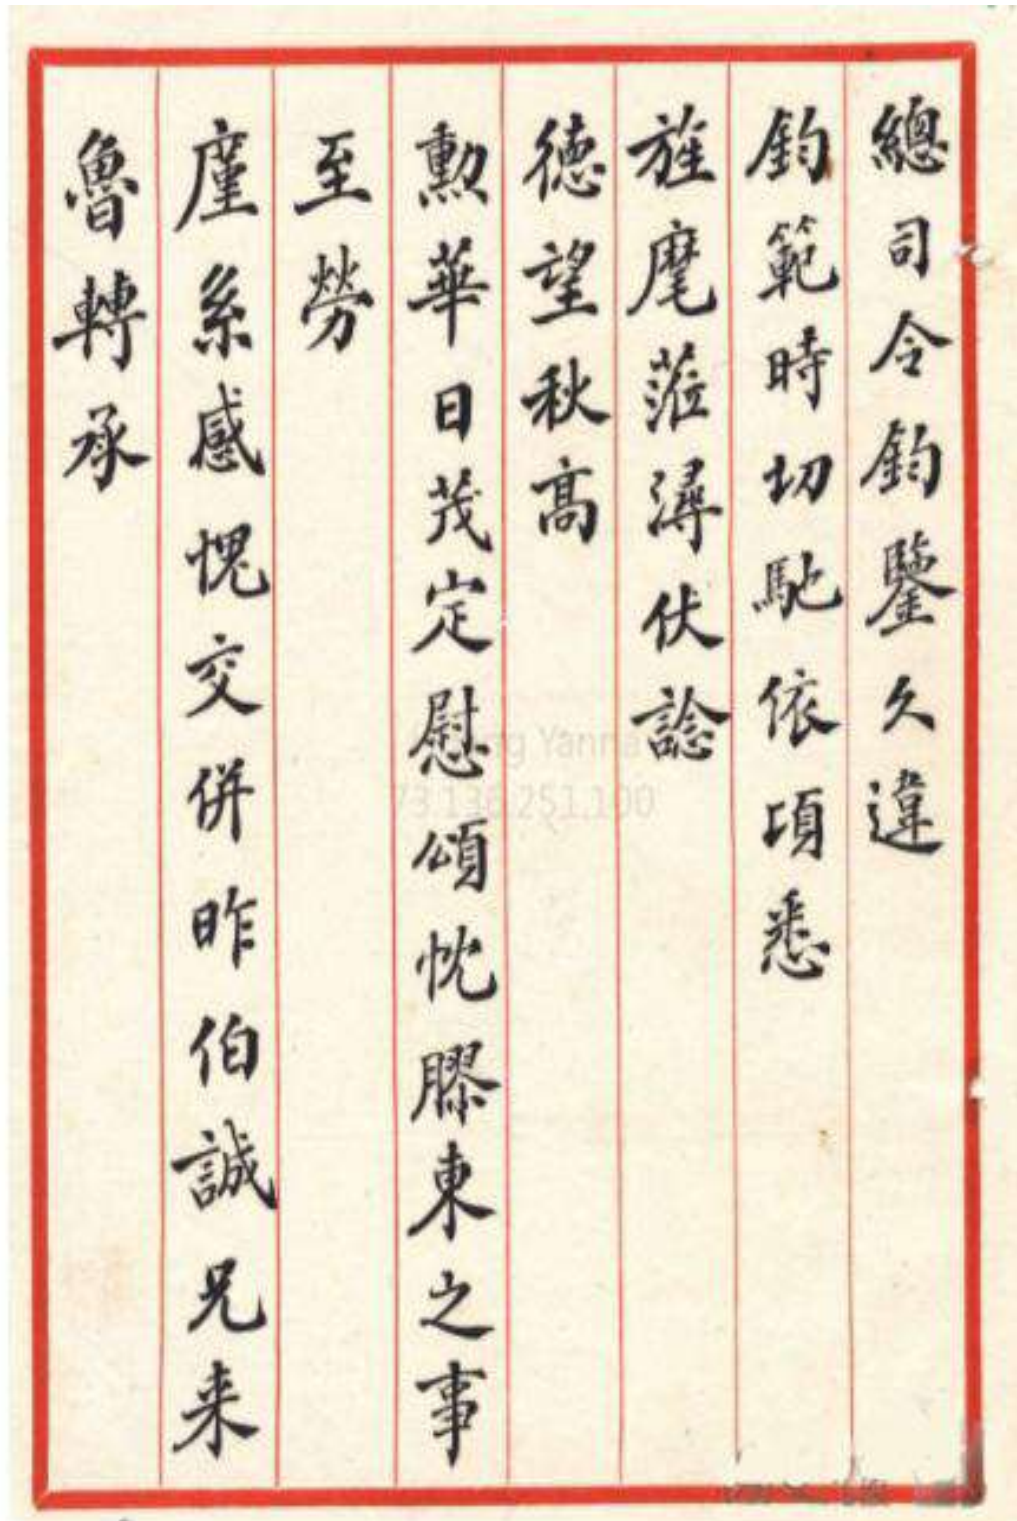 總司令鈞鑒久違
鈞範時切馳依頃悉
旌麾蒞潯伏諗
德望秋高
勲華日茂定慰頌忱膠東之事
至勞
廑系感愧交併昨伯誠兄来
魯轉承
ng Yanna
73.136.251.190